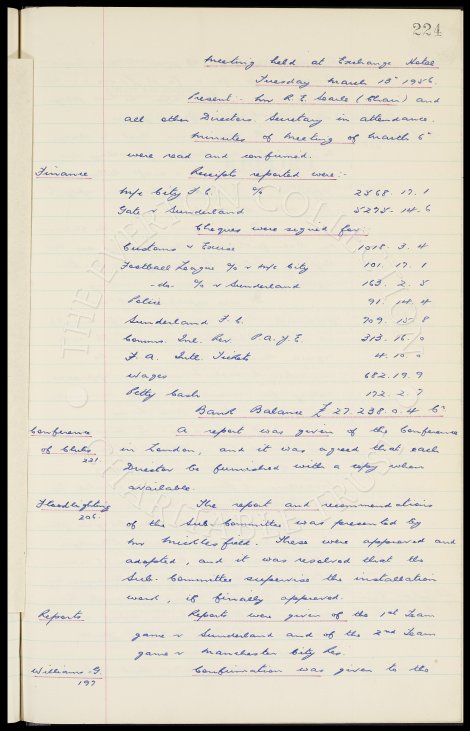 224
Meeting held at Exchange Hotel
Tuesday March 13th 1956.
Present :- Mr R. E. Searle (Chair) and
all other Directors. Secretary in attendance.
Minutes of Meeting of March 6th
were read and confirmed.
Finance Receipts reported were :-
M/c City F.C. % 2568. 17. 1
Gate v Sunderland 5295. 14. 6
Cheques were signed for :-
Customs & Excise 1018. 3. 4
Football League % v M/c City 101. 17. 1
-do- % v Sunderland 163. 2. 5
Police 91. 14. 4
Sunderland F.C. 709. 15. 8
Comms. Inl. Rev. P.A.Y.E. 313. 16. 0
F.A. Intl. Tickets 4. 10. 0
Wages 682. 19. 9
Petty Cash 172. 2. 7
Bank Balance £ 27.238. 0. 4 Cr
Conference A report was given of the Conference
of Clubs in London, and it was agreed that each
221 Director be furnished with a copy when
available.
Floodlighting The report and recommendations
206. of the Sub. Committee was presented by
Mr Micklesfield. These were approved and
adopted, and it was resolved that the
Sub. Committee supervise the installation
work, if finally approved.
Reports Reports were given of the 1st Team
game v Sunderland and of the 2nd Team
game v Manchester City Res.
Williams. G. Confirmation was given to the
197
THE EVERTON COLLECTION
CHARITABLE TRUST
©